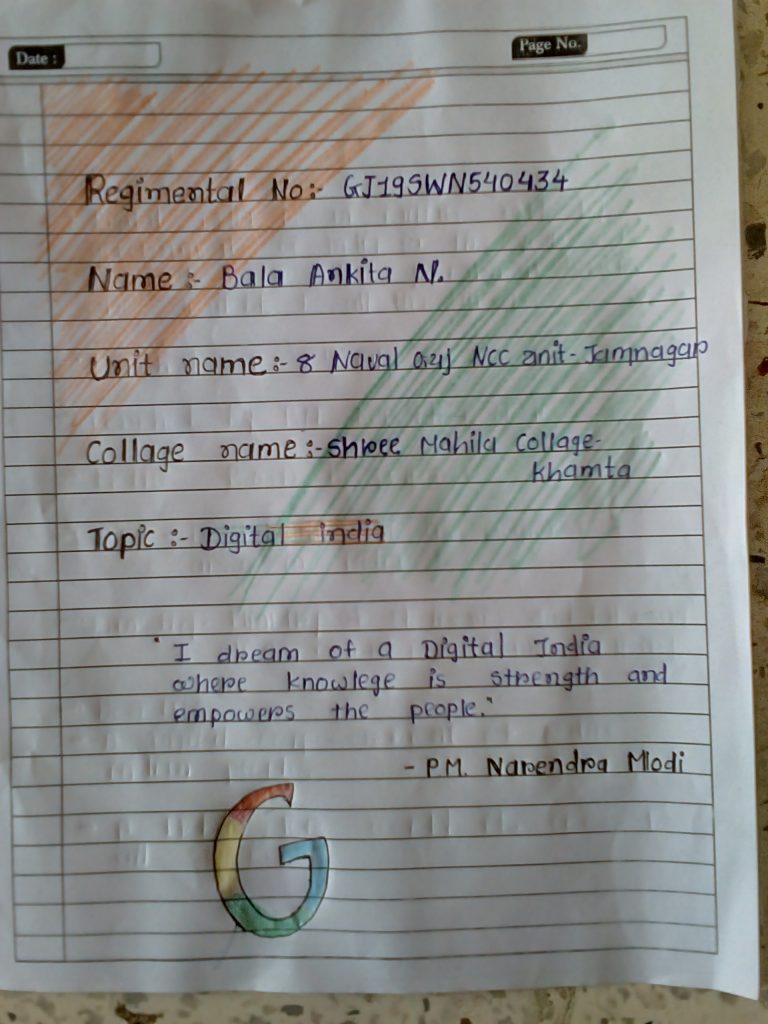 Date :
Page No.
Regimental No:- GJ19SWN540434
Name :- Bala Ankita N.
Unit name:- 8 Naval Guj NCC unit- Jamnagar
Collage name :- Shree Mahila Collage-
Khamta
Topic :- Digital india
"I dream of a Digital India
where knowlege is strength and
empowers the people."
- P.M. Narendra Modi
G